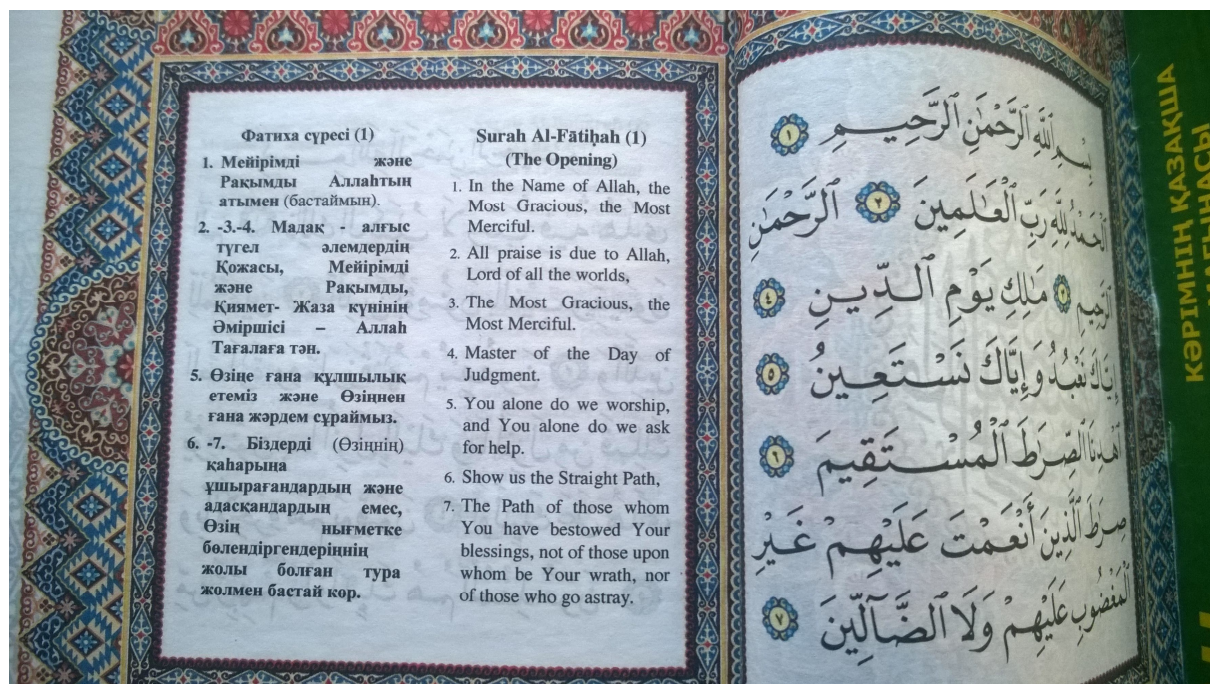 Фатиха сүресі (1)
1. Мейірімді және
Рақымды Аллаһтың
атымен (бастаймын).
2. -3.-4. Мадақ - алғыс
түгел әлемдердің
Қожасы, Мейірімді
және Рақымды,
Қиямет- Жаза күнінің
Әміршісі – Аллаһ
Тағалаға тән.
5. Өзіңе ғана құлшылық
етеміз және Өзіңнен
ғана жәрдем сұраймыз.
6. -7. Біздерді (Өзіңнің)
қаһарыңа
ұшырағандардың және
адасқандардың емес,
Өзің нығметке
бөлендіргендеріңнің
жолы болған тура
жолмен бастай көр.
Surah Al-Fātiḥah (1)
(The Opening)
1. In the Name of Allah, the
Most Gracious, the Most
Merciful.
2. All praise is due to Allah,
Lord of all the worlds,
3. The Most Gracious, the
Most Merciful.
4. Master of the Day of
Judgment.
5. You alone do we worship,
and You alone do we ask
for help.
6. Show us the Straight Path,
7. The Path of those whom
You have bestowed Your
blessings, not of those upon
whom be Your wrath, nor
of those who go astray.
بِسْمِ ٱللَّهِ ٱلرَّحْمَٰنِ ٱلرَّحِيمِ ١
ٱلْحَمْدُ لِلَّهِ رَبِّ ٱلْعَٰلَمِينَ ٢ ٱلرَّحْمَٰنِ
ٱلرَّحِيمِ ٣ مَٰلِكِ يَوْمِ ٱلدِّينِ ٤
إِيَّاكَ نَعْبُدُ وَإِيَّاكَ نَسْتَعِينُ ٥
ٱهْدِنَا ٱلصِّرَٰطَ ٱلْمُسْتَقِيمَ ٦
صِرَٰطَ ٱلَّذِينَ أَنْعَمْتَ عَلَيْهِمْ غَيْرِ
ٱلْمَغْضُوبِ عَلَيْهِمْ وَلَا ٱلضَّآلِّينَ ٧
КӘРІМНІҢ ҚАЗАҚША